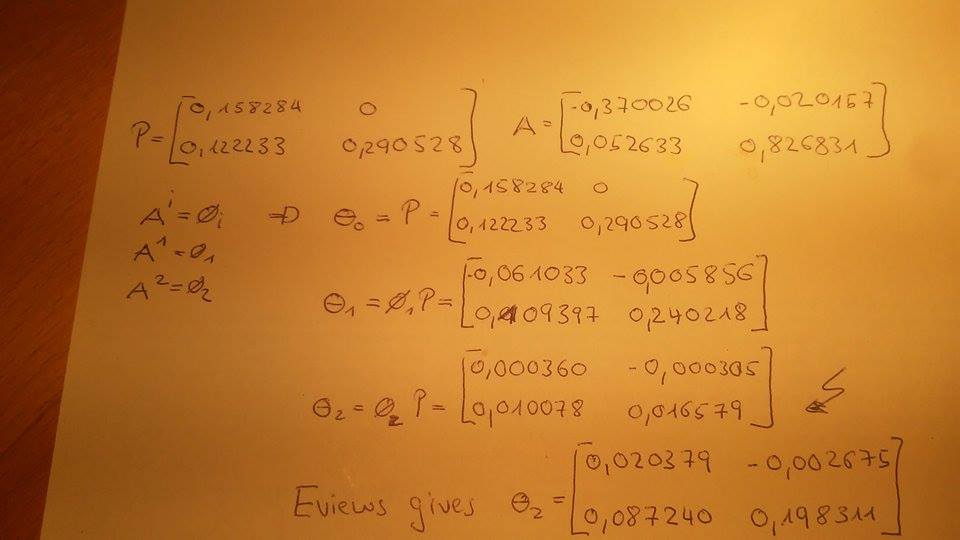 P = [ 0,158284 0 A = [ -0,370026 -0,020157
0,122233 0,290528 ] 0,052633 0,826831 ]
Aⁱ = Φi ⇒ Θ0 = P = [ 0,158284 0
0,122233 0,290528 ]
A¹ = Φ1
A² = Φ2
Θ1 = Φ1 P = [ -0,061033 -0,005856
0,109397 0,240218 ]
Θ2 = Φ2 P = [ 0,000360 -0,000305
0,010078 0,016579 ]
Eviews gives Θ2 = [ 0,020379 -0,002675
0,087240 0,198311 ]